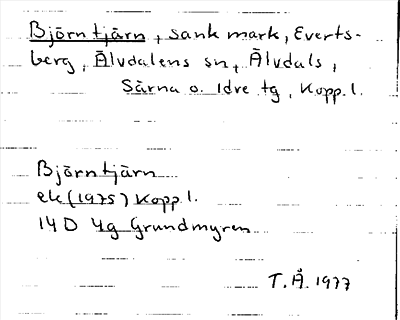 Björntjärn, sank mark, Everts-
berg, Älvdalens sn, Älvdals,
Särna o. Idre tg, Kopp. l.
Björntjärn
ek (1975) Kopp. l.
14 D 4g Grundmyren
T.Å. 1977